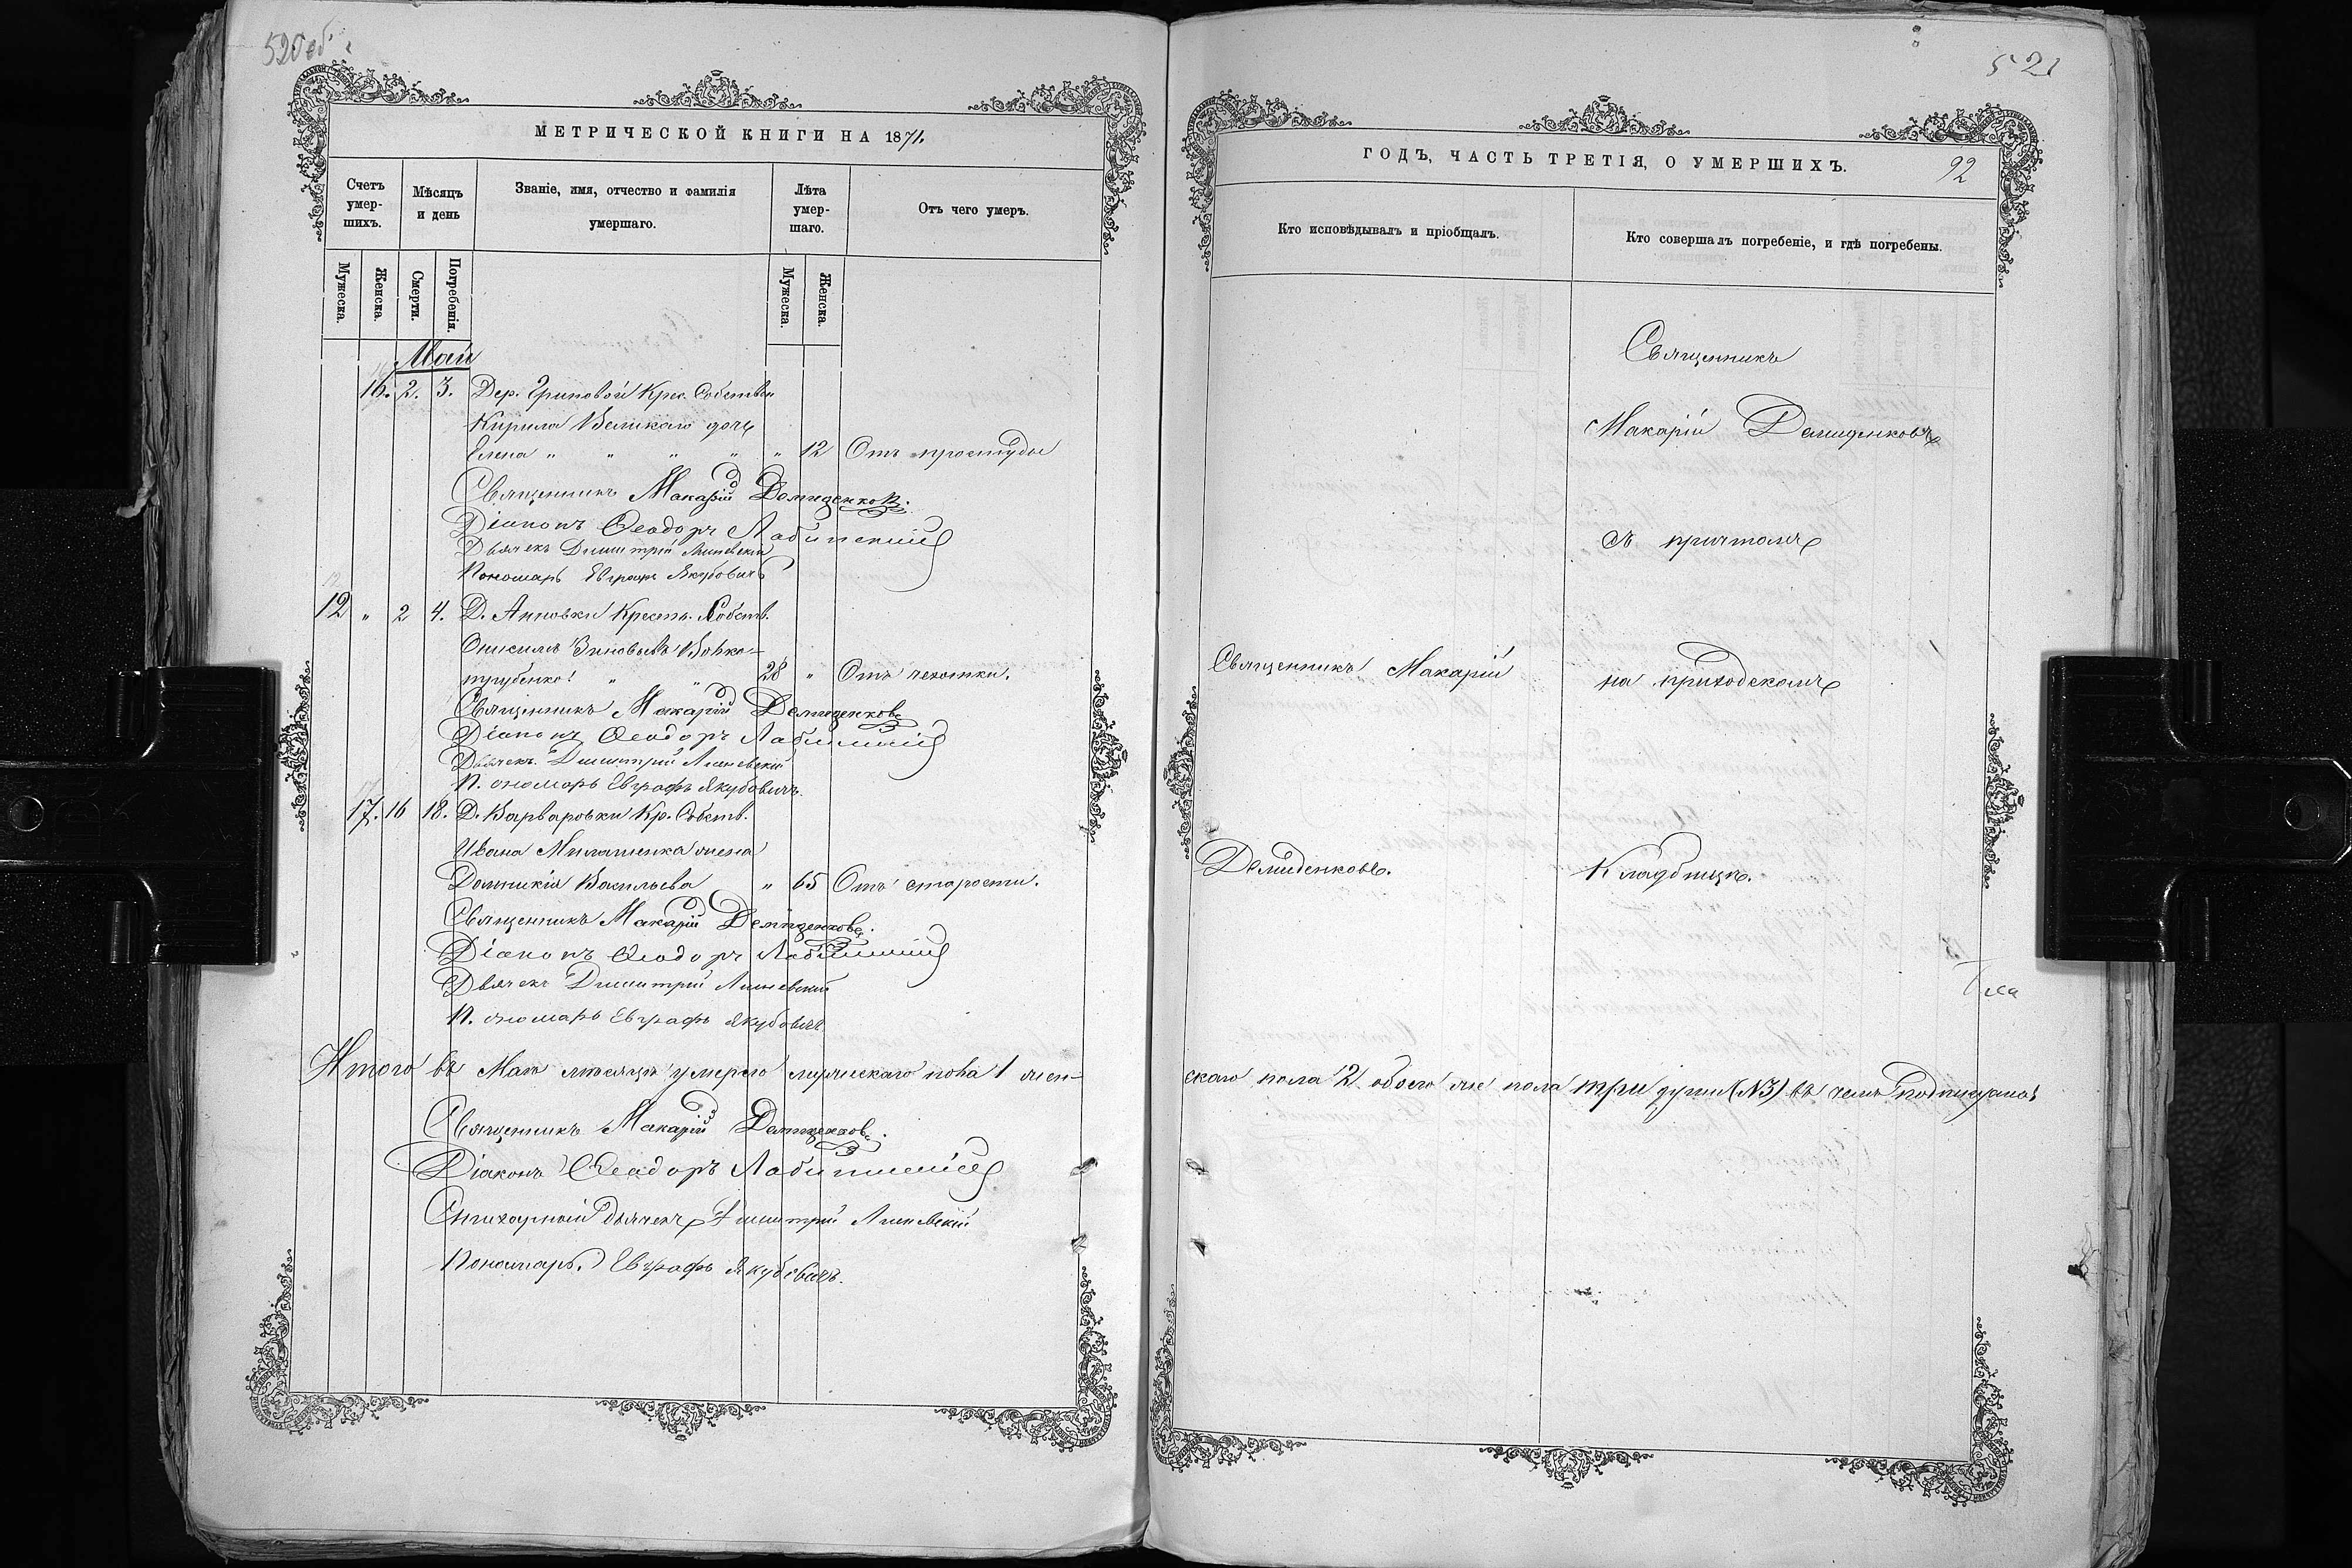 520 об.
МЕТРИЧЕСКОЙ КНИГИ НА 1871.
Счетъ умер-шихъ.
Мѣсяцъ и день
Званіе, имя, отчество и фамилія умершаго.
Лѣта умер-шаго.
Отъ чего умеръ.
Мужеска.
Женска.
Смерти.
Погребенія.
Мужеска.
Женска.
Май
16. 2. 3. Дер. Гриповой Крес. Собствен
Кирила Великаго дочь
Елена " " " " " 12 Отъ простуды
Священникъ Макарій Демиденковъ.
Діаконъ Ѳеодоръ Лабинскій
Дьячекъ Димитрій Линевскій
Пономарь Евграфъ Якубовичъ
12 " 2 4. Д. Анновки Крестъ. Собств.
Онисимъ Зиновьевъ Вовко-
трубенко " " 28 " Отъ чехотки.
Священникъ Макарій Демиденковъ
Діаконъ Ѳеодоръ Лабинскій
Дьячекъ Димитрій Линевскій
Пономарь Евграфъ Якубовичъ
17. 16 18. Д. Варваровки Кр. Собств.
Ивана Милашенка жена
Домникія Васильева " 65 Отъ старости.
Священникъ Макарій Демиденковъ.
Діаконъ Ѳеодоръ Лабинскій
Дьячекъ Димитрій Линевскій
Пономарь Евграфъ Якубовичъ
Итого въ Маѣ мѣсяцѣ умерло мужескаго пола 1 жен-
Священникъ Макарій Демиденковъ.
Діаконъ Ѳеодоръ Лабинскій
Стихарный дьячекъ Димитрій Линевскій
Пономарь Евграфъ Якубовичъ.
521
ГОДЪ, ЧАСТЬ ТРЕТІЯ, О УМЕРШИХЪ.
92
Кто исповѣдывалъ и пріобщалъ.
Кто совершалъ погребеніе, и гдѣ погребены.
Священникъ
Макарій Демиденковъ
съ причтомъ
Священникъ Макарій
на приходскомъ
Демиденковъ.
Кладбищѣ.
скаго пола 2 обоего же пола три души (№3) въ чемъ подписуемся